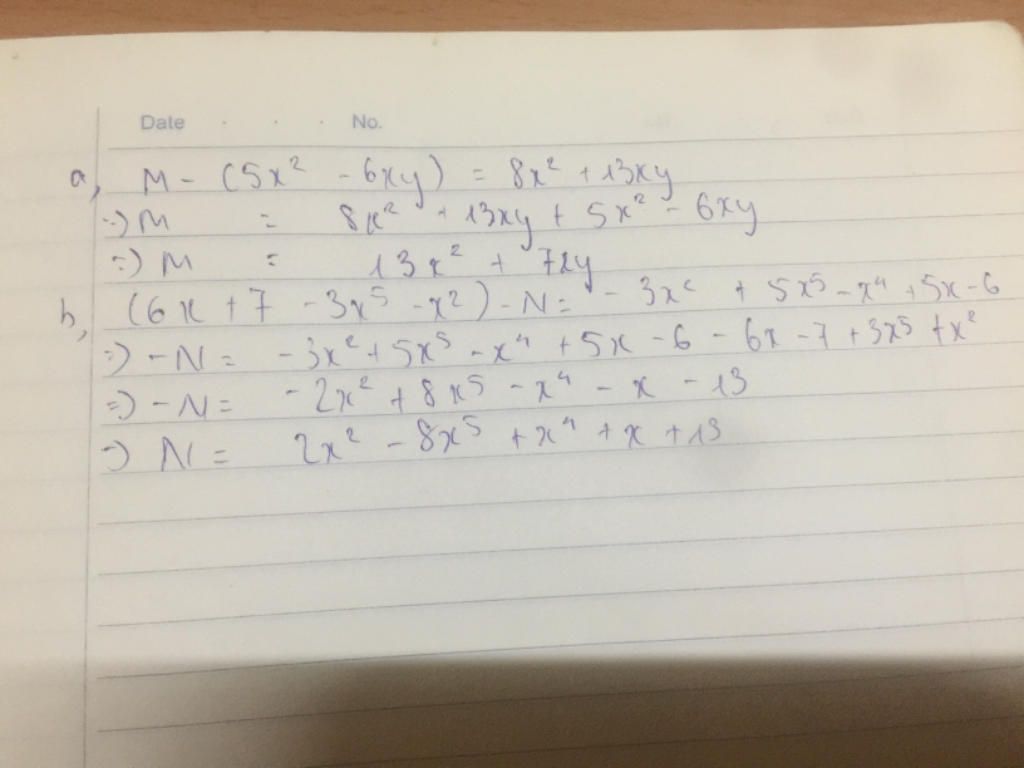 Date . . . No.
a, M - (5x² - 6xy) = 8x² + 13xy
=) M = 8x² + 13xy + 5x² - 6xy
=) M = 13x² + 7xy
b, (6x + 7 - 3x⁵ - x²) - N = - 3x² + 5x⁵ - x⁴ + 5x - 6
=) - N = - 3x² + 5x⁵ - x⁴ + 5x - 6 - 6x - 7 + 3x⁵ + x²
=) - N = - 2x² + 8x⁵ - x⁴ - x - 13
=) N = 2x² - 8x⁵ + x⁴ + x + 13